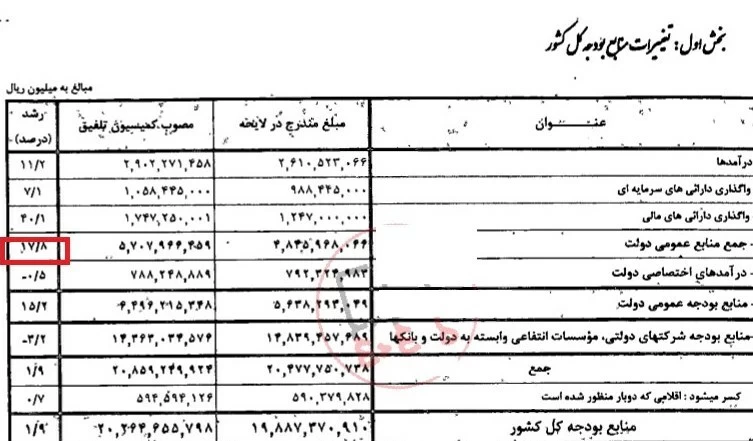 بخش اول: تغییرات منابع بودجه کل کشور
مبالغ به میلیون ریال
عنـــــوان | مبلغ مندرج در لایحه | مصوب کمیسیون تلفیق | رشد (درصد)
درآمدها | ۲,۶۱۰,۵۲۳,۰۶۶ | ۲,۹۰۲,۲۷۱,۴۵۸ | ۱۱/۲
واگذاری دارائی های سرمایه ای | ۹۸۸,۴۴۵,۰۰۰ | ۱,۰۵۸,۴۴۵,۰۰۰ | ۷/۱
واگذاری دارائی های مالی | ۱,۲۴۷,۰۰۰,۰۰۰ | ۱,۷۴۷,۲۵۰,۰۰۱ | ۴۰/۱
جمع منابع عمومی دولت | ۴,۸۴۵,۹۶۸,۰۶۶ | ۵,۷۰۷,۹۶۶,۴۵۹ | ۱۷/۸
درآمدهای اختصاصی دولت | ۷۹۲,۳۲۴,۹۸۳ | ۷۸۸,۲۴۸,۸۸۹ | -۰/۵
منابع بودجه عمومی دولت | ۵,۶۳۸,۲۹۳,۰۴۹ | ۶,۴۹۶,۲۱۵,۳۴۸ | ۱۵/۲
منابع بودجه شرکتهای دولتی، مؤسسات انتفاعی وابسته به دولت و بانکها | ۱۴,۸۳۹,۴۵۷,۶۸۹ | ۱۴,۳۶۳,۰۳۴,۵۷۶ | -۳/۲
جمع | ۲۰,۴۷۷,۷۵۰,۷۳۸ | ۲۰,۸۵۹,۲۴۹,۹۲۴ | ۱/۹
کسر میشود: اقلامی که دوبار منظور شده است | ۵۹۰,۳۷۹,۸۲۸ | ۵۹۴,۵۹۴,۱۲۶ | ۰/۷
منابع بودجه کل کشور | ۱۹,۸۸۷,۳۷۰,۹۱۰ | ۲۰,۲۶۴,۶۵۵,۷۹۸ | ۱/۹